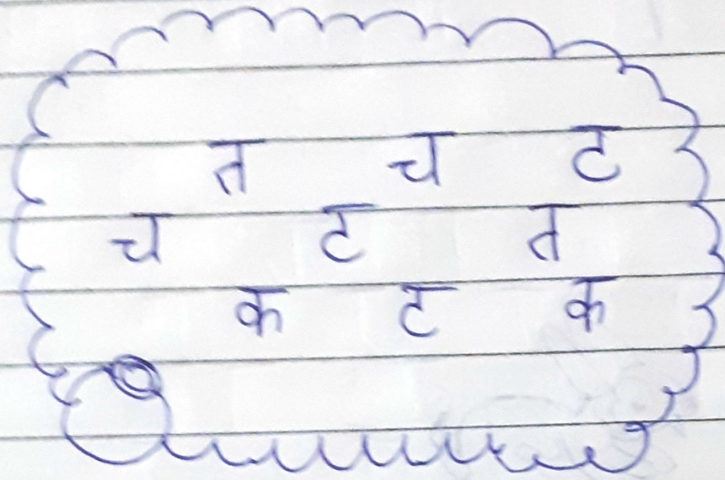 त च ट
च ट त
क ट क